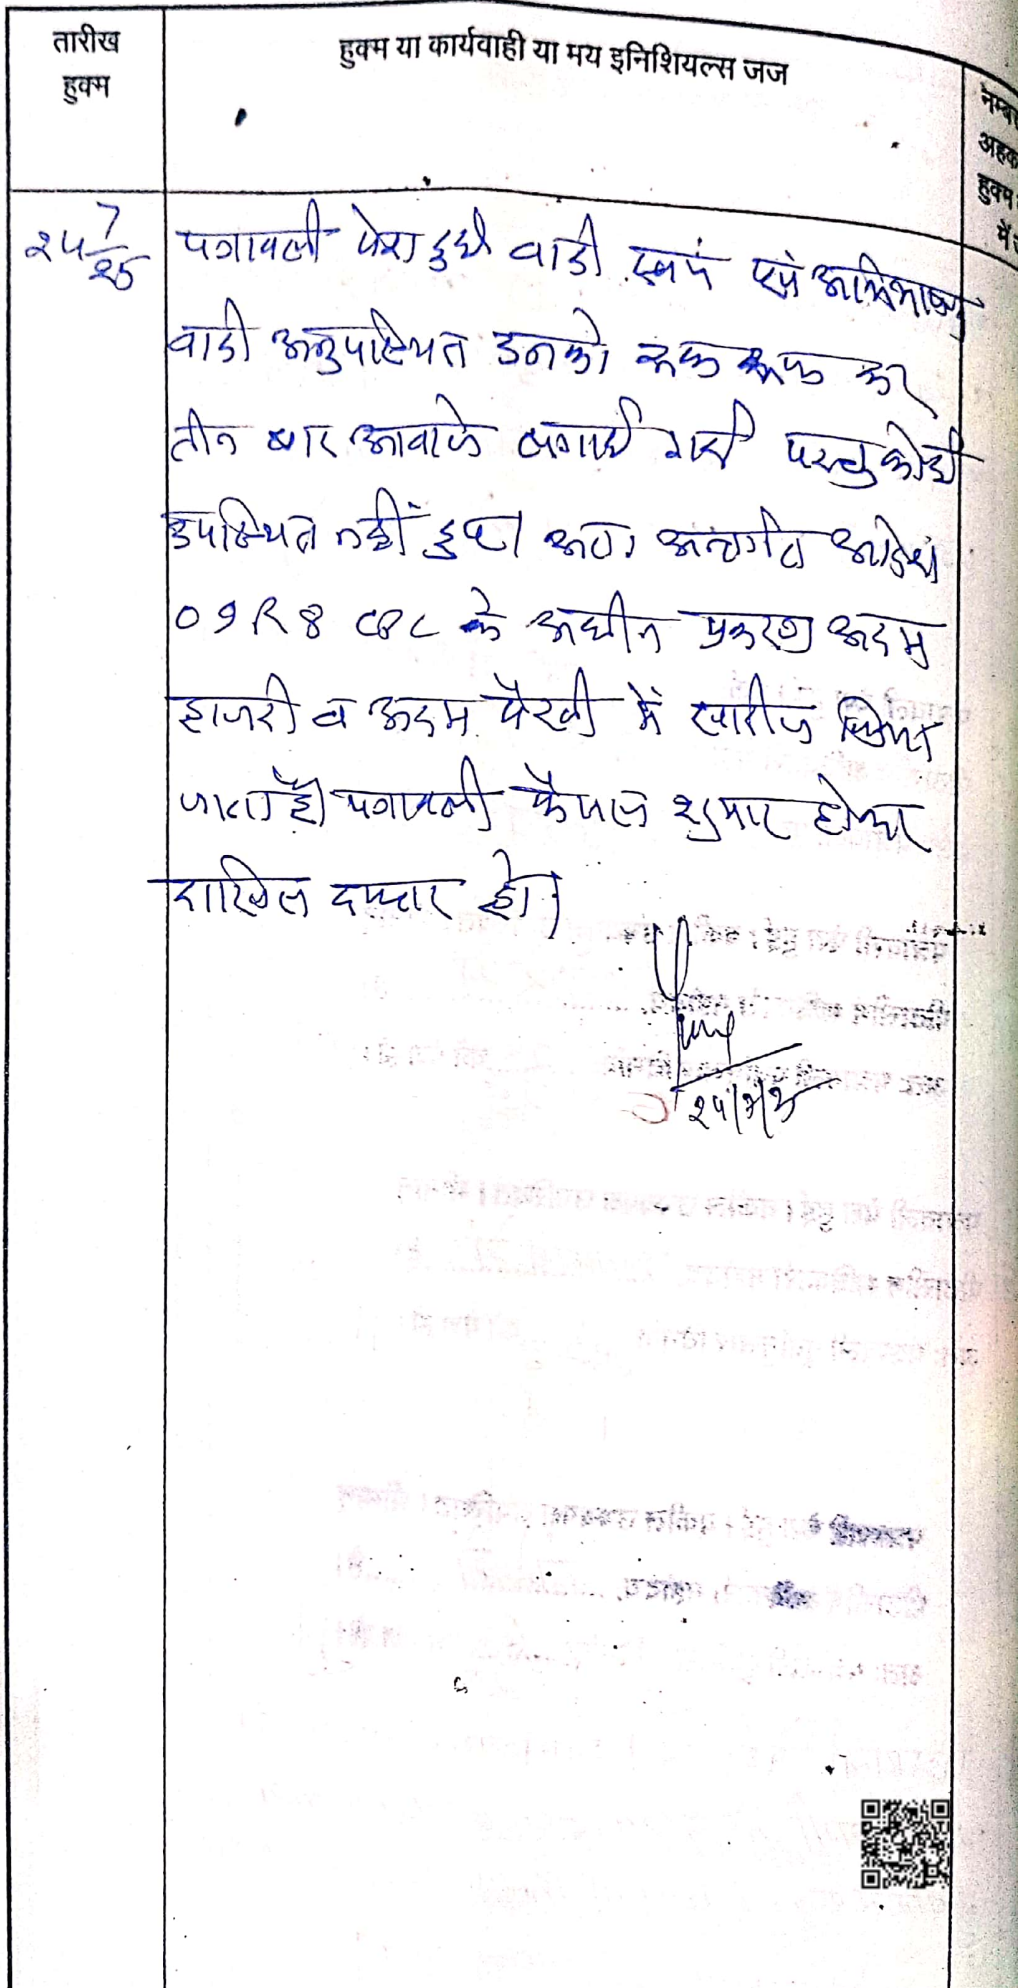 तारीख
हुक्म
हुक्म या कार्यवाही या मय इनिशियल्स जज
नम्बर
अहक
हुक्म
में
२५ 7/25
पत्रावली पेश हुयी वादी स्वयं एवं अभिभाषक
वादी अनुपस्थित उनको रूक रूक कर
तीन बार आवाजे लगायी गयी परन्तु कोई
उपस्थित नहीं हुआ अतः अन्तर्गत आदेश
09 R 8 CPC के अधीन प्रकरण अदम
हाजरी व अदम पैरवी में खारीज किया
जाता है। पत्रावली फैसल शुमार होकर
दाखिल दफ्तर हो।